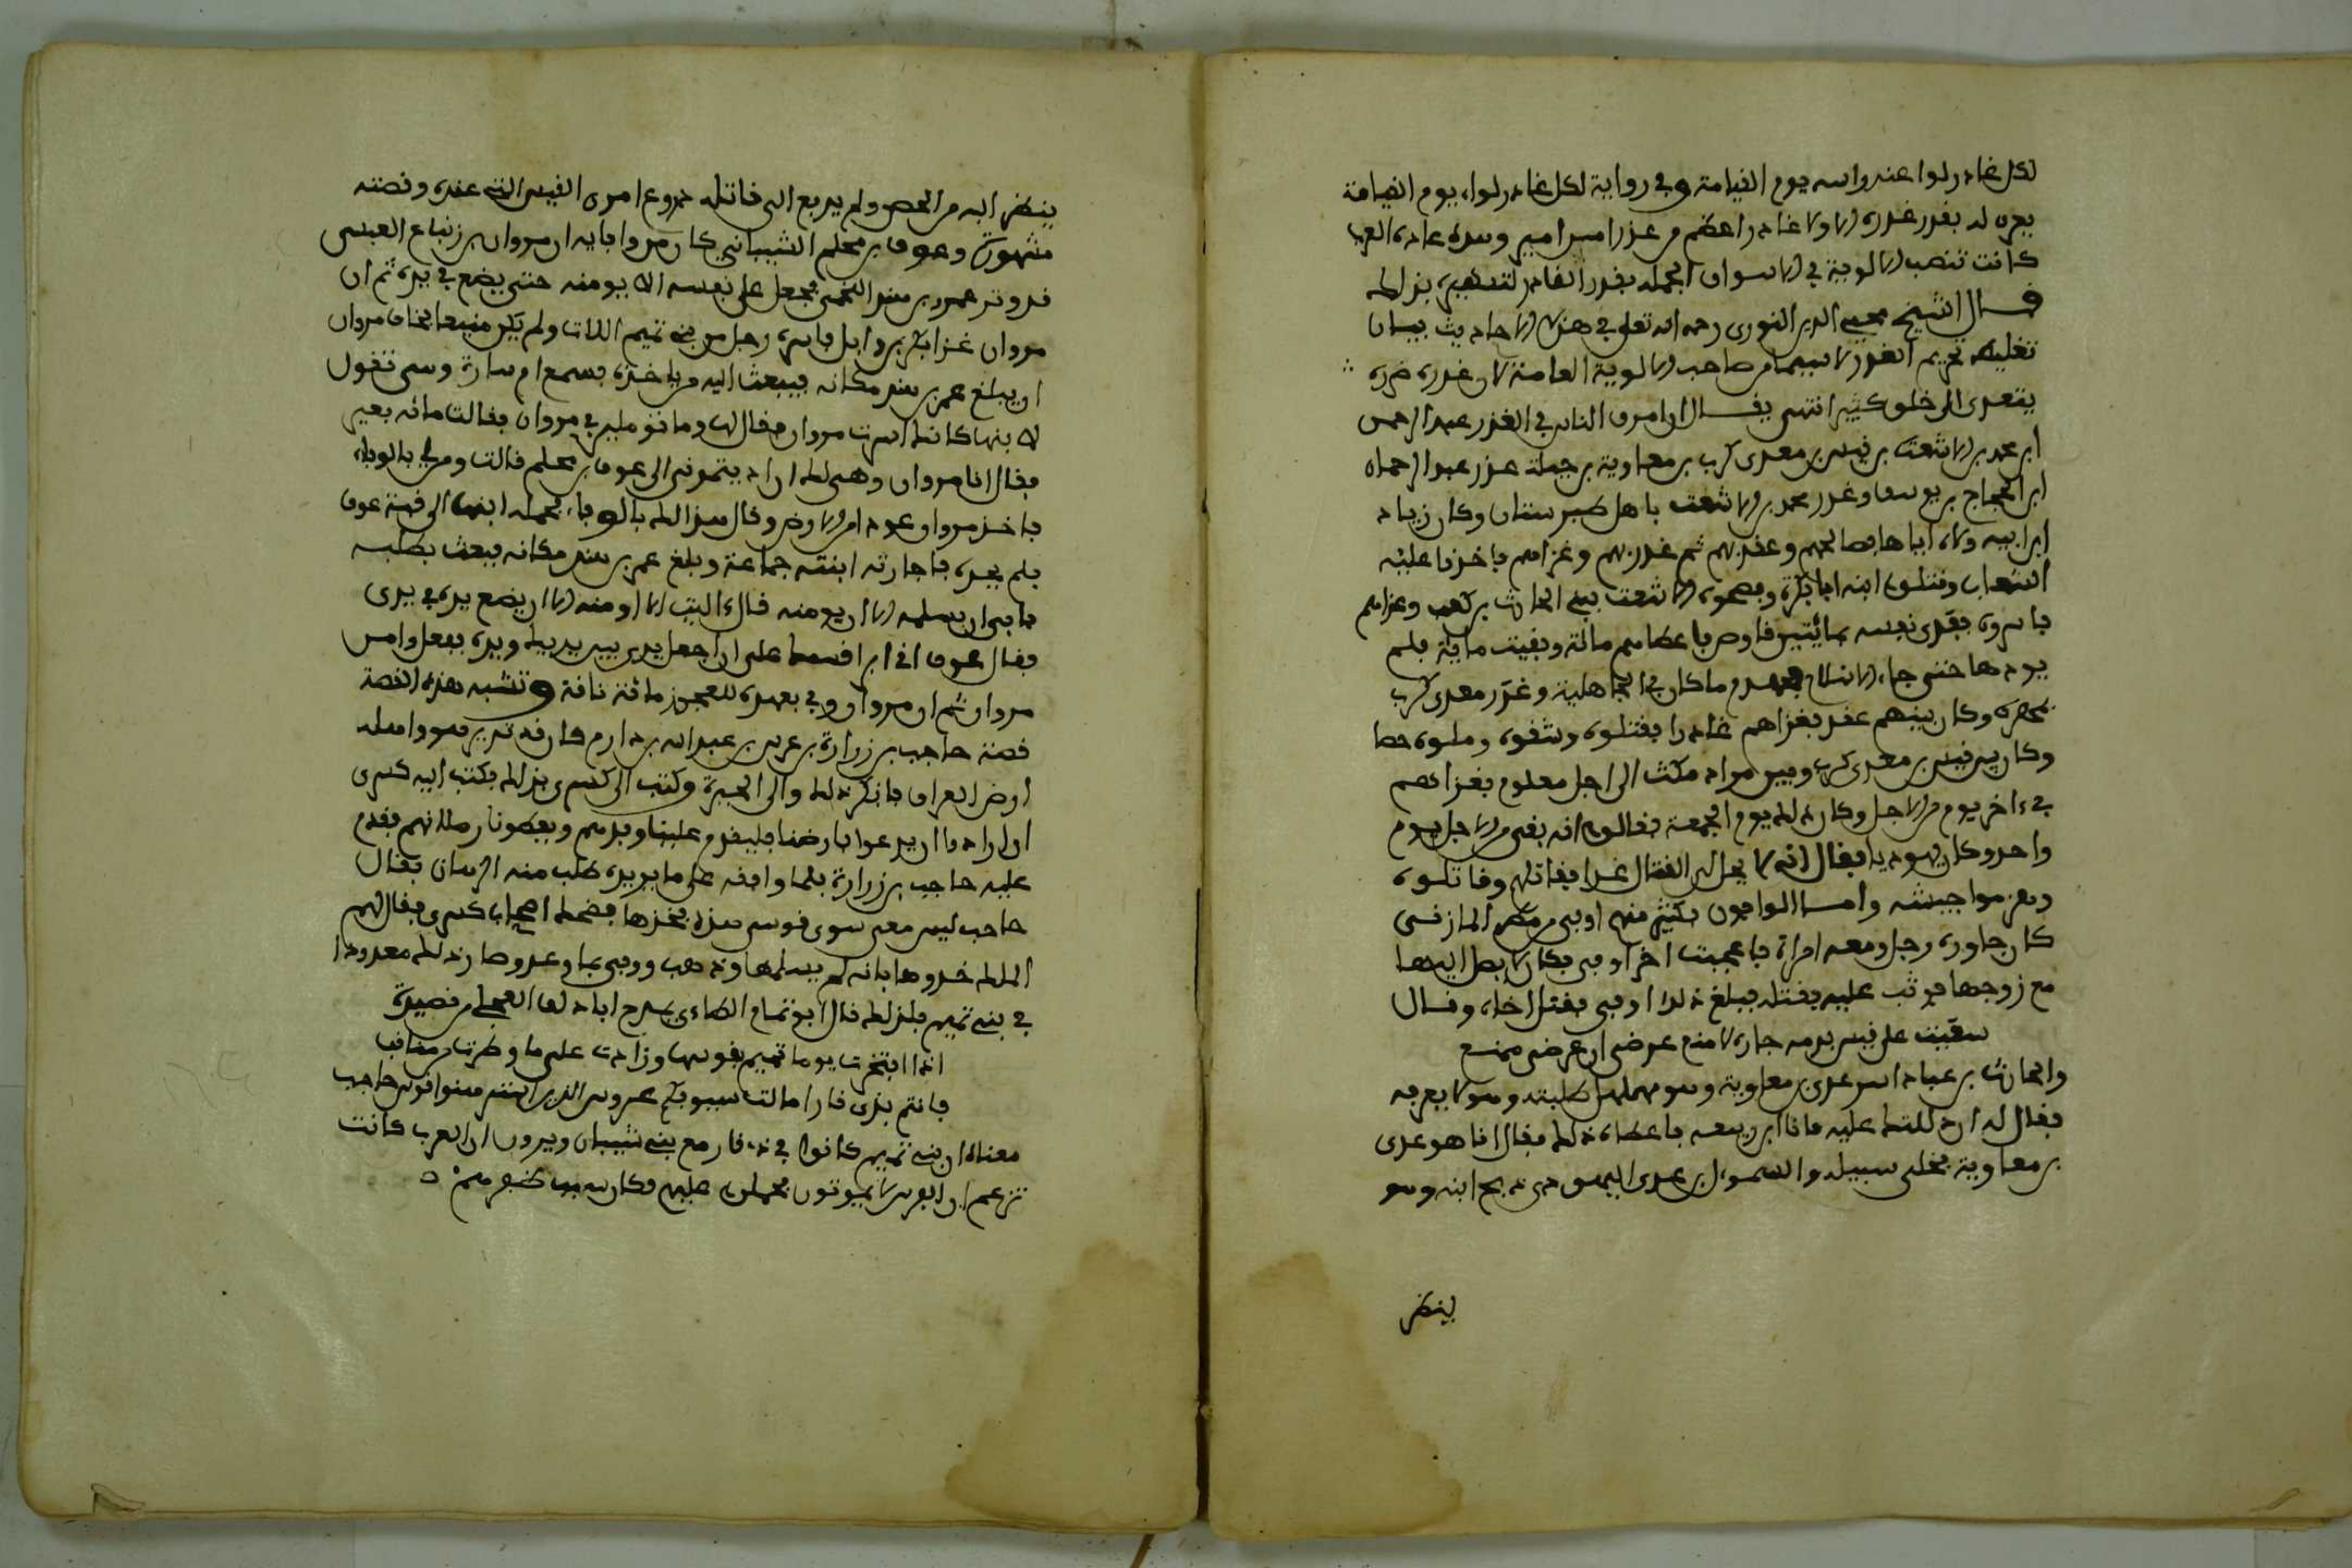 لكل غادر لواء عند راسه يوم القيامة وفي رواية لكل غادر لواء يوم القيامة
يعرف له بقدر غدره الا ولا غادر اعظم من غدرا من امير وهذه عادة العرب
كانت تنصب الالوية في الاسواق الجملة بقدر الغادر لتشهيره بذلك
قال الشيخ محيي الدين النووي رحمه الله تعلى في هذه الاحاديث بيان
تغليظ تحريم الغدر لا سيما من صاحب الالوية العامة لان غدره ضرره
يتعدى الى خلق كثير انتهى يقال ان اعرق الناس في الغدر عبد الرحمن
ابن محمد بن الاشعث بن قيس بن معدي كرب بن معاوية بن جبلة غدر عبد الرحمان
ابن الحجاج بن يوسف وغدر محمد بن الاشعث باهل طبرستان وكان زياد
ابن ابيه ولاه اياها فصالحهم وعقد لهم ثم غدر بهم وغزاهم فاخذوا عليه
الشعاب وقتلوا ابنه ابا بكرة وفضحوه والاشعث بني الحارث بن كعب وغزاهم
فاسروه ففدى نفسه بمائتين قلوص فاعطاهم مائة وبقيت ماية فلم
يودها حتى جاء الاسلام فهدم ما كان في الجاهلية وغدر معدي كرب
بمهرة وكان بينهم عقد فغزاهم غادرا فقتلوه وشقوه وملوه حصا
وكان بين قيس بن معدي كرب وبين مراد مكث الى اجل معلوم فغزاهم
في ءاخر يوم من الاجل وكان ذلك يوم الجمعة فقالوا انه بقي من الاجل يوم
واحد وكان يهوديا فقال انه لا يحل لي القتال غدا فقاتلهم وقاتلوه
وهزموا جيشه واما الوافون فكثير منهم اوفى بن مطر المازني
كان جاوره رجل ومعه امراة فاعجبت اخا اوفى فكان لا يصل اليها
مع زوجها فوثب عليه فقتله فبلغ ذلك اوفى فقتل اخاه وقال
سعيت على قيس بذمة جاره لامنع عرضي ان عرضي ممنع
والحارث بن عباد اسر عدي بن معاوية وهو مهلهل طلبته وهو لا يعرفه
فقال له ان دللتك عليه فانا ابن ربيعه فاعطاه ذلك فقال انا هو عدي
بن معاوية فخلى سبيله والسموءل بن عدي اليهودي ذبح ابنه وهو
ينظر
ينظر اليه من الحصن ولم يدفع الى قاتله دروع امرئ القيس التي عنده وقصته
مشهورة وعوف بن محلم الشيباني كان من وفايه ان مروان بن زنباع العبسي
قد وتر عمرو بن هند اللخمي فجعل على نفسه الا يومنه حتى يضع في يده ثم ان
مروان غزا بكر بن وايل فاسره رجل من بني تيم اللات ولم يكن منيعا فخاف مروان
ان يبلغ عمر بن هند مكانه فيبعث اليه من ياخذه فسمع ام ساره وهي تقول
لابنها كانك اسرت مروان فقال لها وما تؤملين في مروان فقالت مائه بعير
فقال انا مروان وهي لك ان اديتموني الى عوف بن محلم قالت ومن لي بالوفاء
فاخذ مروان عودا من الارض وقال هذا لك بالوفاء فحمله ابنها الى قبة عوف
فلم يجده فاجارته ابنته جماعة وبلغ عمر بن هند مكانه فبعث بطلبه
فابى ان يسلمه الا ان يومنه قال ءاليت الا اومنه الا ان يضع يده في يدي
فقال عوف اذا ابر قسمك على ان اجعل يدي بين يديك ويده ففعل وامن
مروان ثم ان مروان وفي بعهده للعجوز مائة ناقة وتشبه هذه القصة
قصة حاجب بن زرارة بن عدس بن عبد الله بن دارم كان قد تدير هو واهله
ارض العراق فانكر ذلك والى الحيرة وكتب الى كسرى بذلك فكتب اليه كسرى
ان ارادوا ان يدعوا بارضنا فليقدم علينا وفدهم ويعطونا رهائنهم فقدم
عليه حاجب بن زرارة فلما وافقه على ما يريده طلب منه الرهان فقال
حاجب ليس معي سوى قوسي هذه فخذها فضحك اصحاب كسرى فقال لهم
الملك خذوها فانه لم يسلمها وذهب ووفى بما وعد وصار ذلك معدودا
في بني تميم فلذلك قال ابو تمام الطاءي يمدح ابا دلف العجلي من قصيدة
اذا افتخرت يوما تميم بقوسها وزادت على ما وطدت من مناقب
فانتم بذي قار امالت سيوفكم عروش الذين استرهنوا قوس حاجب
معناه ان بني تميم كانوا في ذي قار مع بني شيبان ويرون ان العرب كانت
تزعم ان الفرس لا يموتون فحملوا عليهم فكان سبب ظفرهم